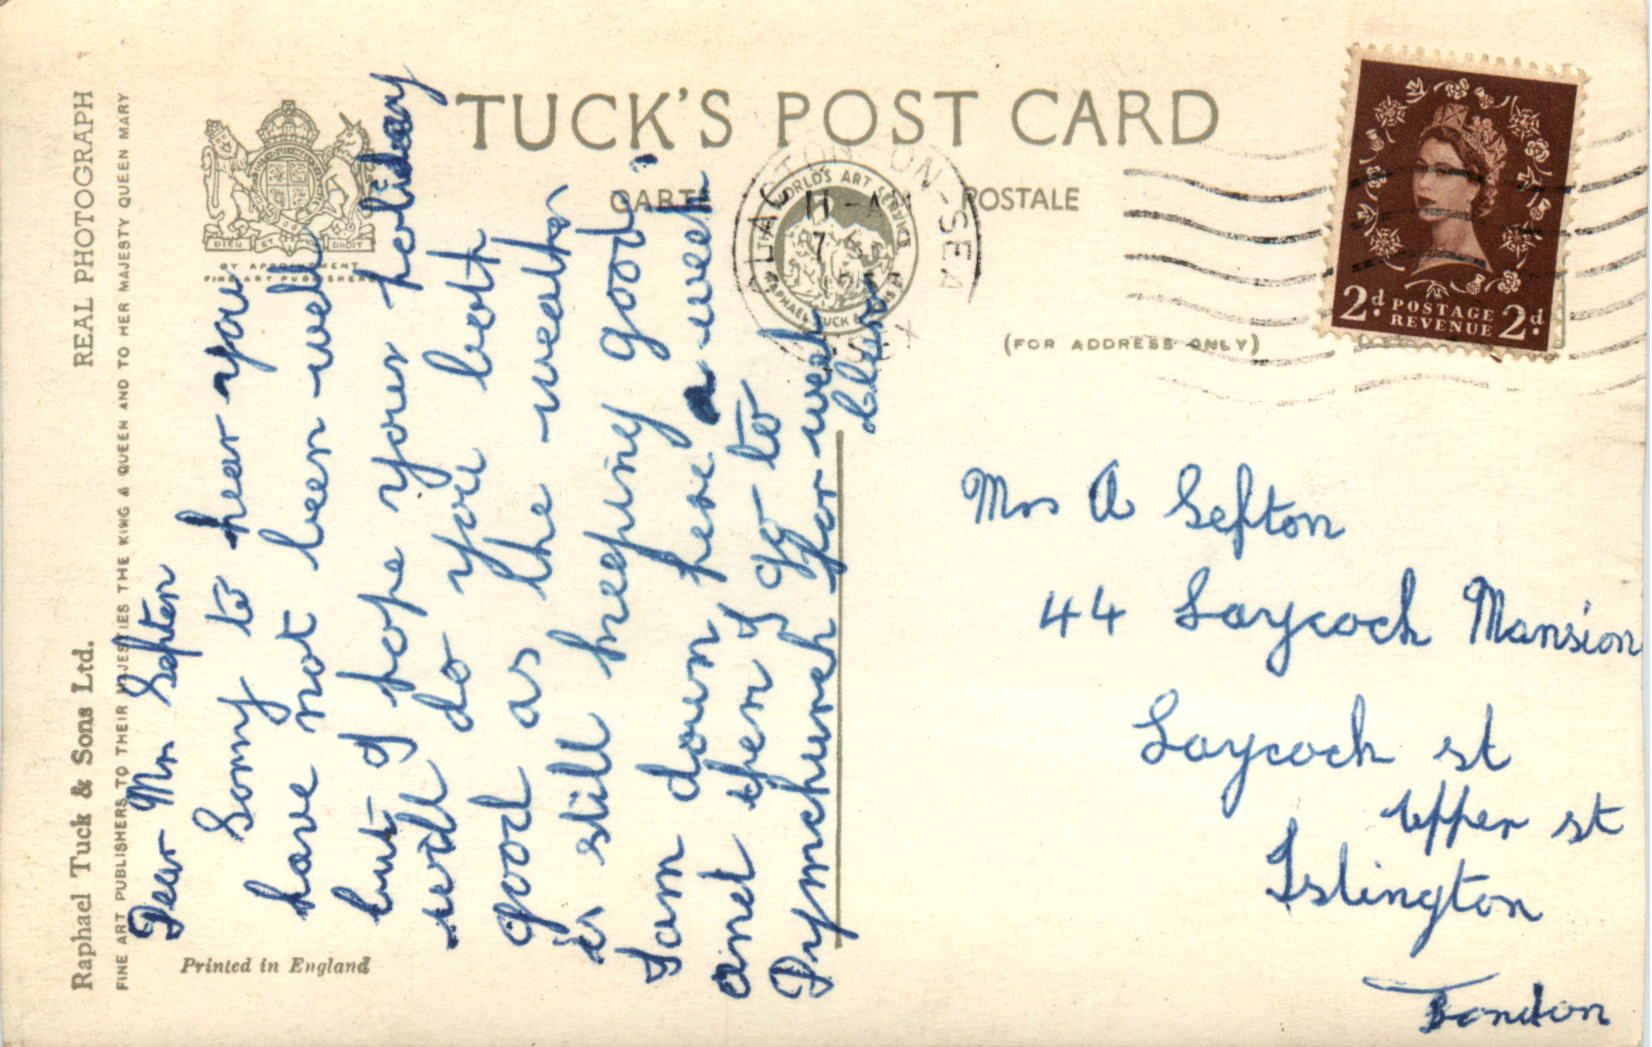 TUCK'S POST CARD
CARTE POSTALE
(FOR ADDRESS ONLY)
REAL PHOTOGRAPH
Raphael Tuck & Sons Ltd.
FINE ART PUBLISHERS TO THEIR MAJESTIES THE KING & QUEEN AND TO HER MAJESTY QUEEN MARY
DIEU ET MON DROIT
BY APPOINTMENT
FINE ART PUBLISHERS
Printed in England
THE WORLD'S ART SERVICE
RAPHAEL TUCK & SONS LD
CLACTON-ON-SEA
11-AM
7
2d POSTAGE REVENUE 2d
Dear Mrs Sefton
Sorry to hear you
have not been well
but I hope your holiday
will do you both
good as the weather
is still keeping good
I am down here a week
and then I go to
Dymchurch for week
Eleanor
Mrs A Sefton
44 Laycock Mansion
Laycock st
Upper st
Islington
London